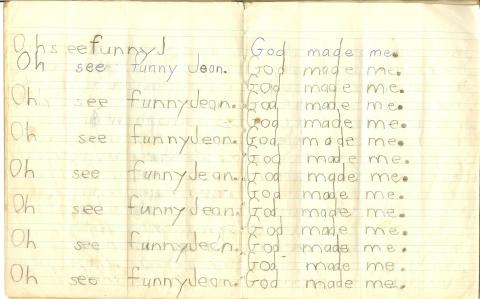 Ohs eefunnyJ
Oh see funny Jean.
Oh see funnyJean.
Oh see funnyJean.
Oh see funnyJean.
Oh see funnyJean.
Oh see funnyJean.
Oh see funnyJean.
God made me.
God made me.
God made me.
God made me.
God made me.
God made me.
God made me.
God made me.
God made me.
God made me.
God made me.
God made me.
God made me.
God made me.